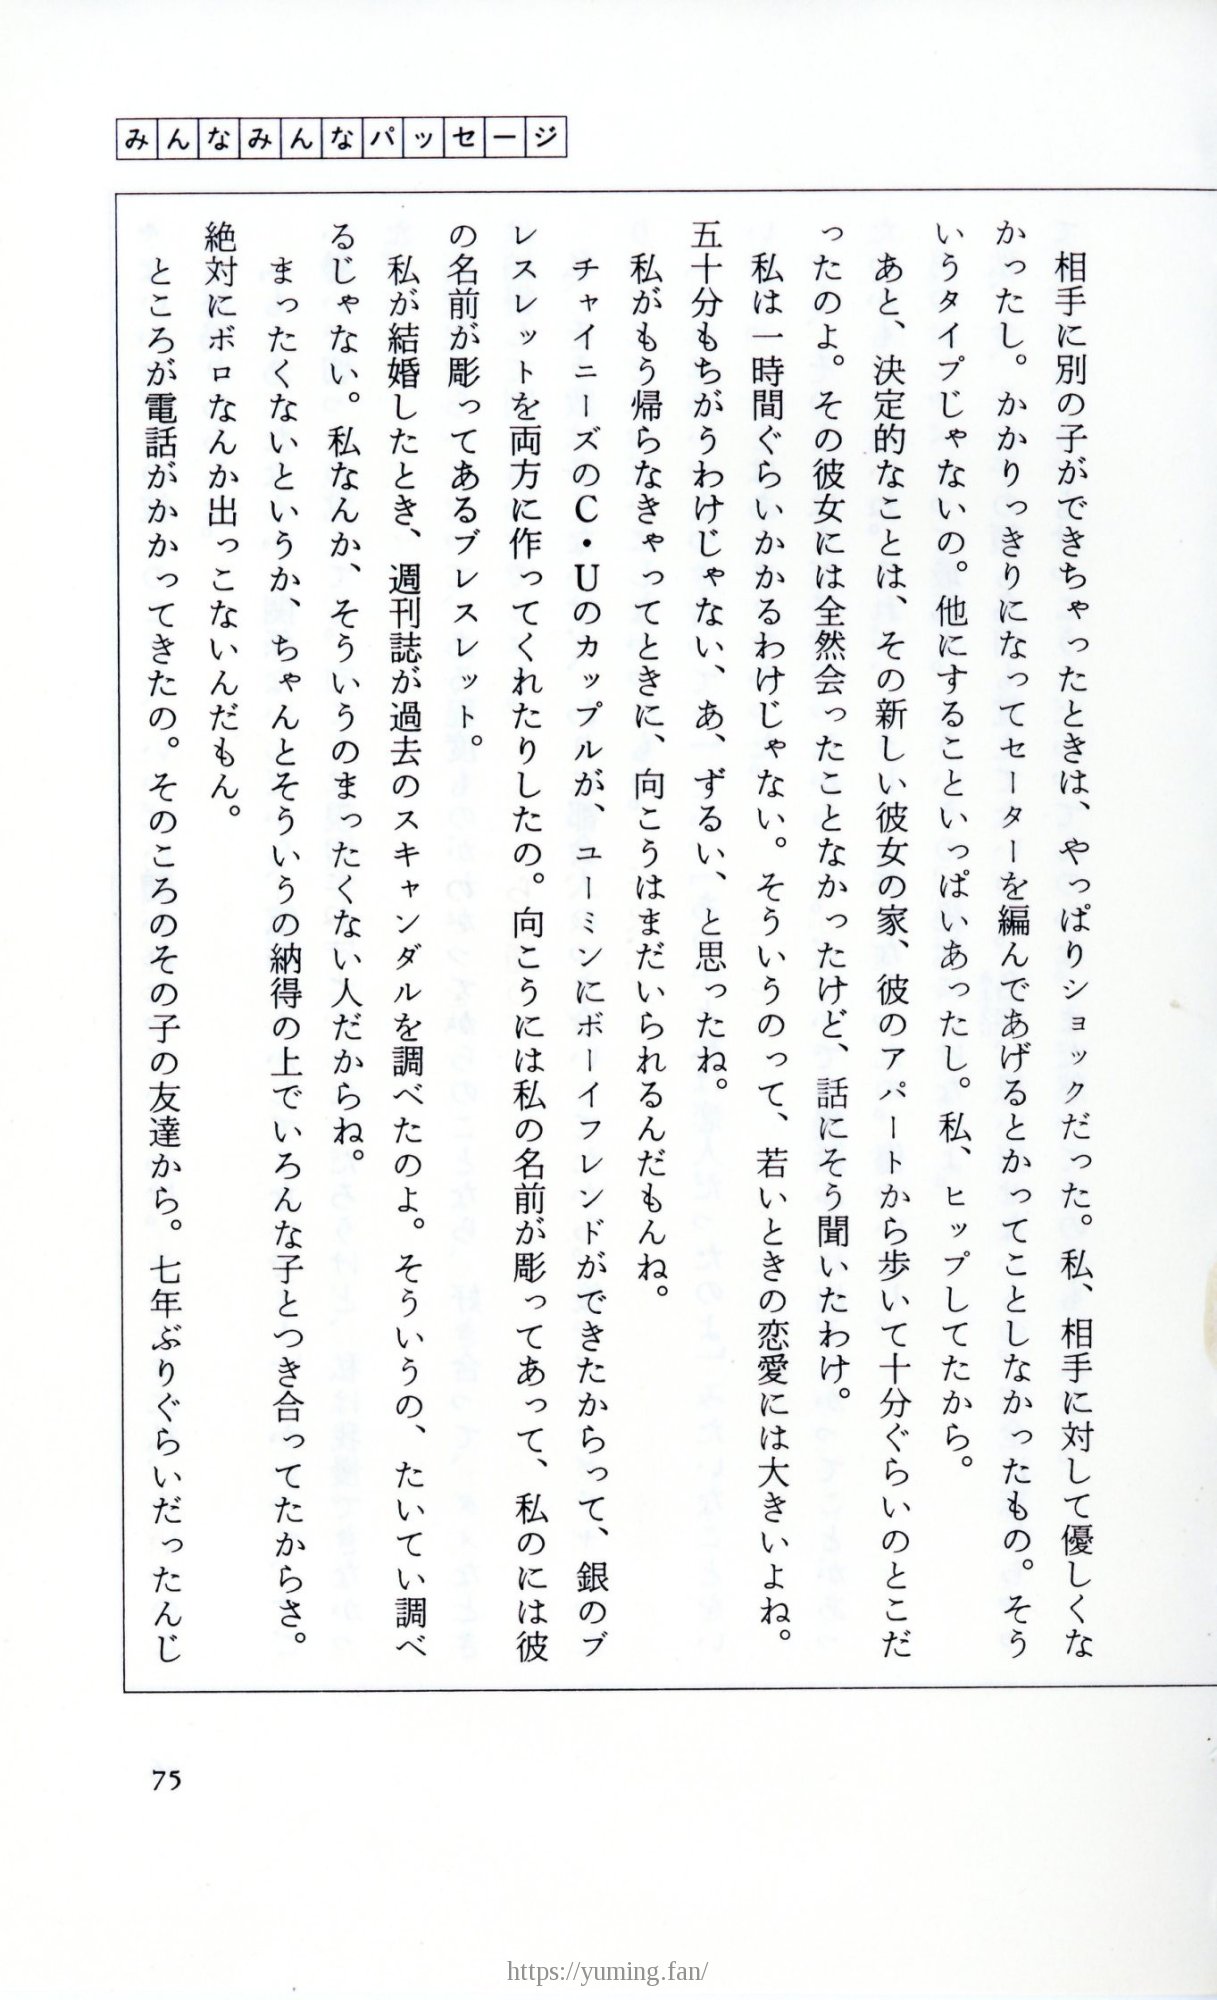 みんなみんなパッセージ
　相手に別の子ができちゃったときは、やっぱりショックだった。私、相手に対して優しくな
かったし。かかりっきりになってセーターを編んであげるとかってことしなかったもの。そう
いうタイプじゃないの。他にすることいっぱいあったし。私、ヒップしてたから。
　あと、決定的なことは、その新しい彼女の家、彼のアパートから歩いて十分ぐらいのとこだ
ったのよ。その彼女には全然会ったことなかったけど、話にそう聞いたわけ。
　私は一時間ぐらいかかるわけじゃない。そういうのって、若いときの恋愛には大きいよね。
五十分もちがうわけじゃない、あ、ずるい、と思ったね。
　私がもう帰らなきゃってときに、向こうはまだいられるんだもんね。
　チャイニーズのC・Uのカップルが、ユーミンにボーイフレンドができたからって、銀のブ
レスレットを両方に作ってくれたりしたの。向こうには私の名前が彫ってあって、私のには彼
の名前が彫ってあるブレスレット。
　私が結婚したとき、週刊誌が過去のスキャンダルを調べたのよ。そういうの、たいてい調べ
るじゃない。私なんか、そういうのまったくない人だからね。
　まったくないというか、ちゃんとそういうの納得の上でいろんな子とつき合ってたからさ。
絶対にボロなんか出っこないんだもん。
　ところが電話がかかってきたの。そのころのその子の友達から。七年ぶりぐらいだったんじ
75
https://yuming.fan/